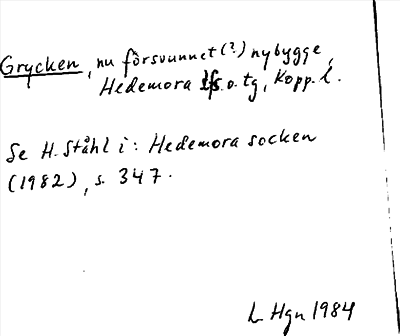 Grycken, nu försvunnet(?) nybygge,
Hedemora lfs. o. tg, Kopp. l.
Se H. Ståhl i: Hedemora socken
(1982), s. 347.
L Hgn 1984